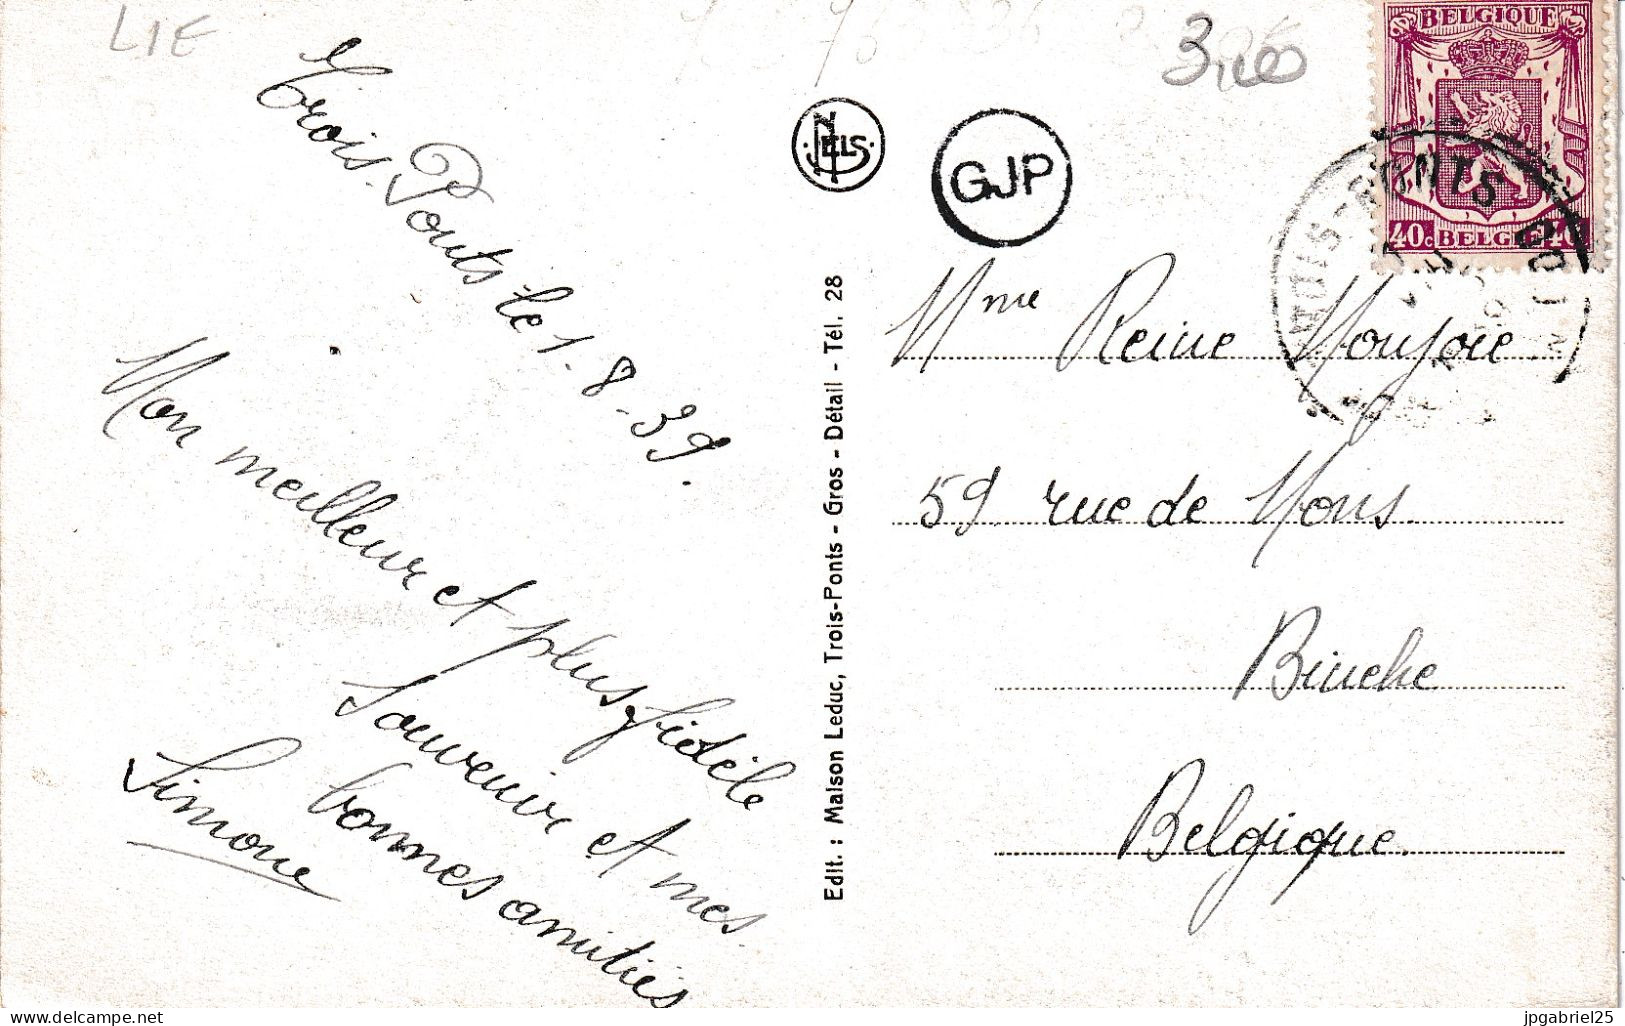 LIE
3,00
Trois-Ponts le 1-8-39.
Mon meilleur et plus fidèle
souvenir et mes
bonnes amitiés
Simone
NELS
GJP
Edit. : Maison Leduc, Trois-Ponts - Gros - Détail - Tél. 28
BELGIQUE
40c BELGIE 40
TROIS-PONTS
Mme Reine Monjoie
59 rue de Mons.
Binche
Belgique.
delcampe.net
jpgabriel25